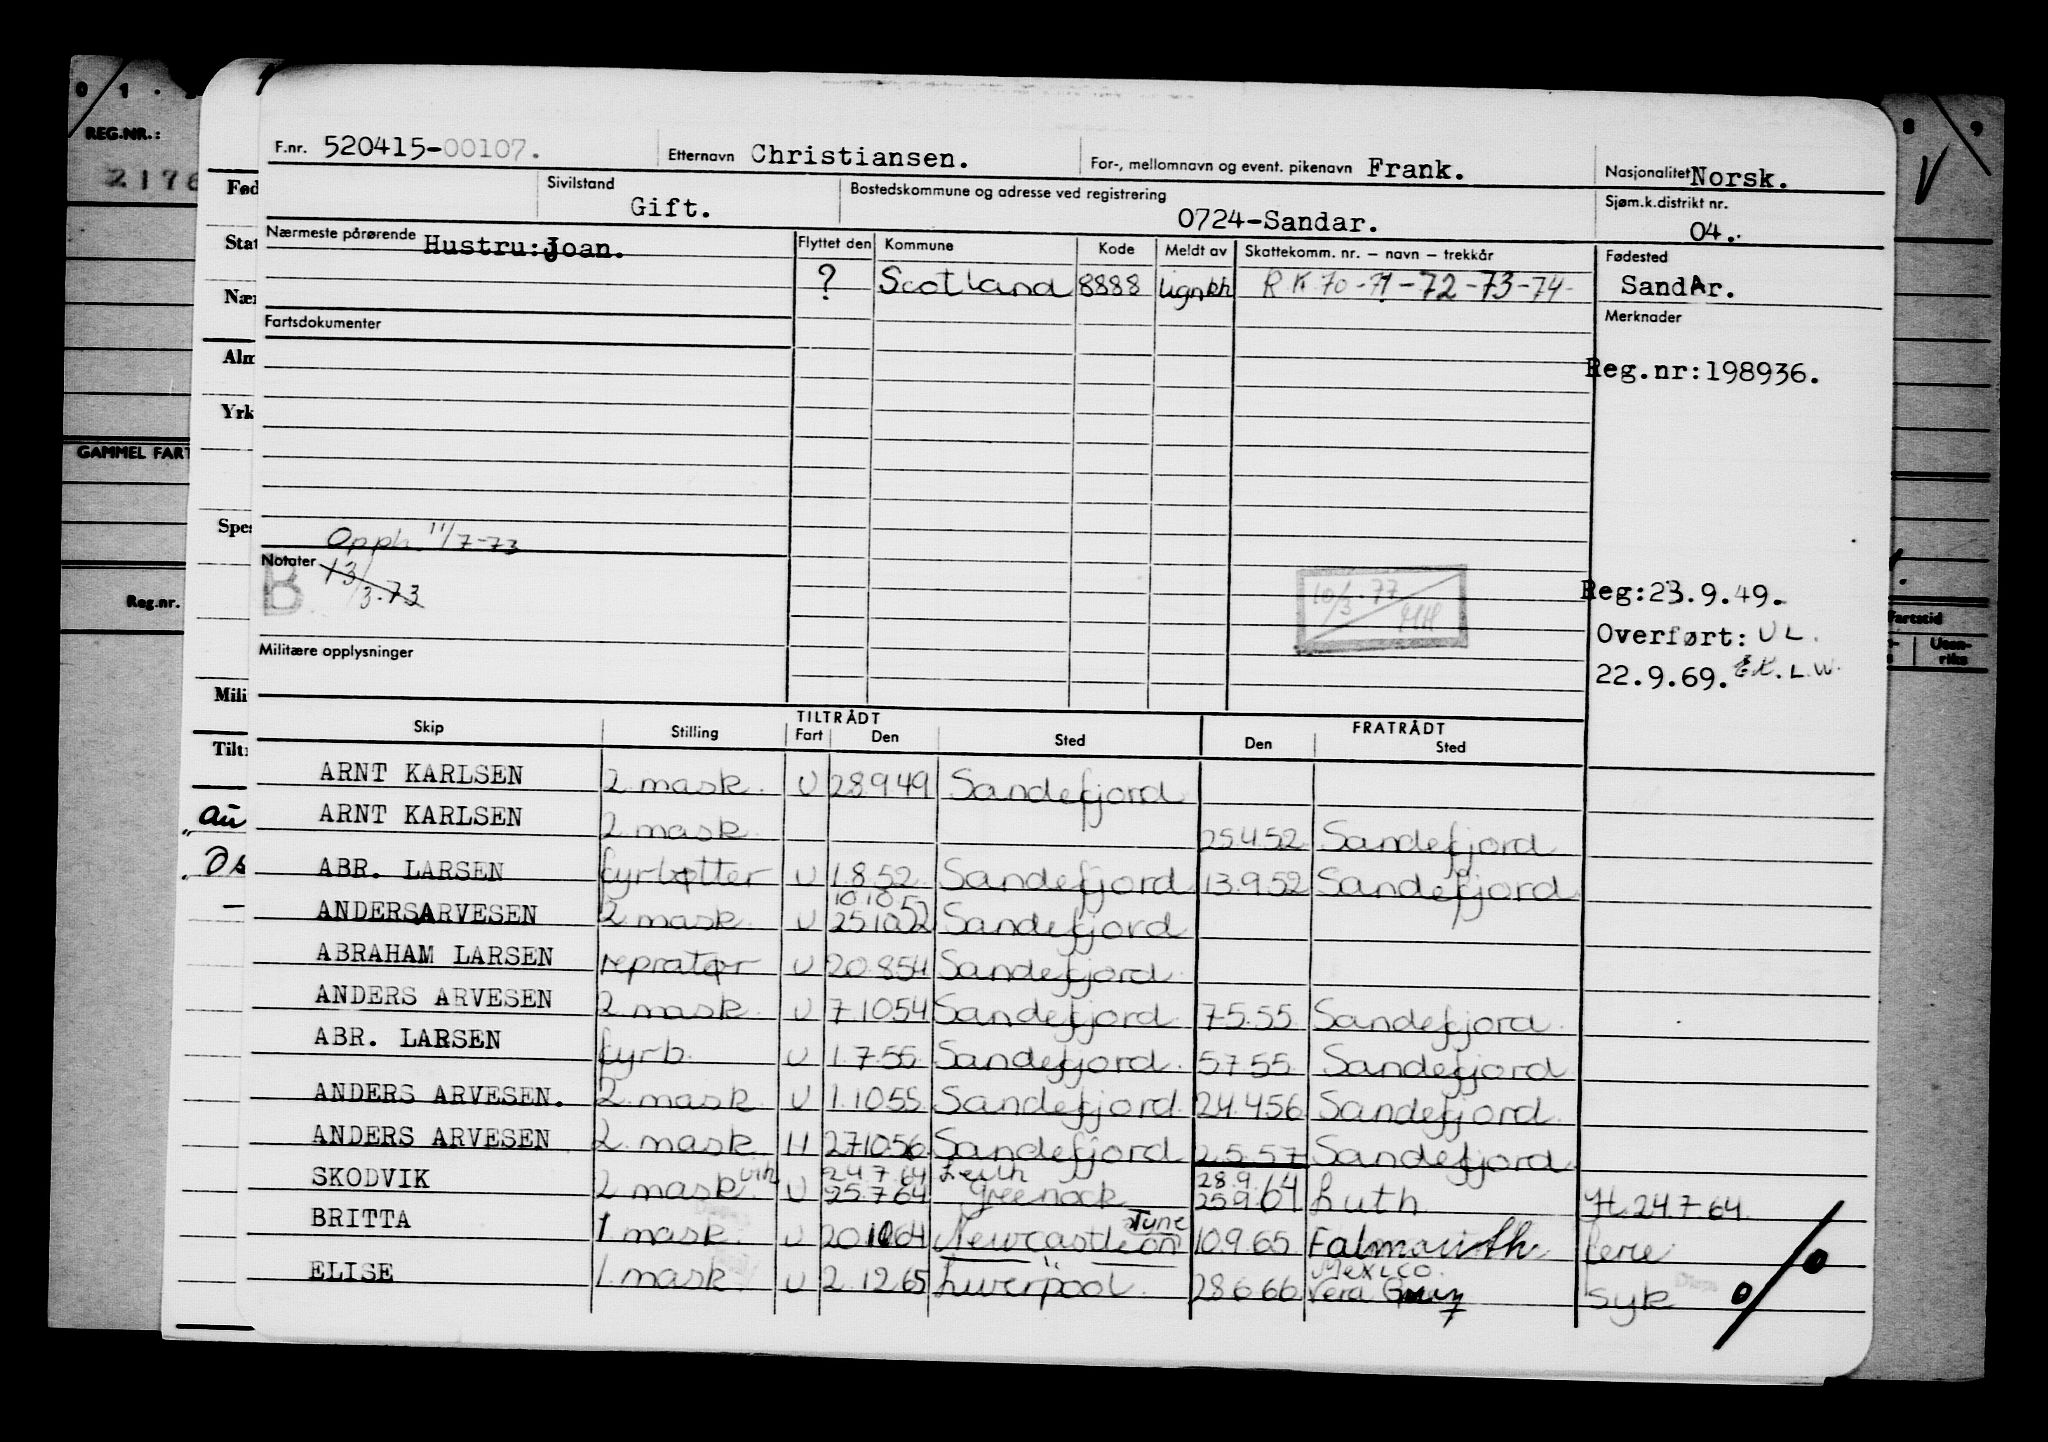 0 1
REG.NR.:
2176
GAMMEL FART
Reg.nr.
Fød
Stat
Nær
Alm
Yrk
Spes
Mili
Tiltr
8 9
V
Fartstid
Uten-
riks
F.nr. 520415-00107. Etternavn Christiansen. For-, mellomnavn og event. pikenavn Frank. Nasjonalitet Norsk.
Sivilstand Gift. Bostedskommune og adresse ved registrering 0724-Sandar. Sjøm.k.distrikt nr. 04.
Nærmeste pårørende Hustru: Joan. Flyttet den Kommune Kode Meldt av Skattekomm. nr. – navn – trekkår Fødested
? Scotland 8888 lignkh RK 70-71-72-73-74- Sandar.
Fartsdokumenter Merknader
Reg.nr:198936.
Opph. 11/7-73
Notater 13/3.73
B
10/3.77 HH
Reg:23.9.49.
Overført: UL.
22.9.69. EK. L.W.
Militære opplysninger
Skip Stilling TILTRÅDT Fart Den Sted FRATRÅDT Den Sted
ARNT KARLSEN 2 mask. U 28949 Sandefjord
ARNT KARLSEN 2 mask. 25.4.52 Sandefjord
ABR. LARSEN fyrbøtter U 1.8.52 Sandefjord 13.9.52 Sandefjord
10.10.52
ANDERS ARVESEN 2 mask. U 251052 Sandefjord
ABRAHAM LARSEN repratør U 20.854 Sandefjord
ANDERS ARVESEN 2 mask. U 7.1054 Sandefjord 75.55 Sandefjord
ABR. LARSEN fyrb. U 1.7.55 Sandefjord 57.55 Sandefjord
ANDERS ARVESEN. 2 mask. U 1.1055 Sandefjord 24.456 Sandefjord
ANDERS ARVESEN 2. mask H 27.1056 Sandefjord 2.5.57 Sandefjord
24.7.64 Leith 28.9.64
SKODVIK 2 mask vik U 25.7.64 Greenock 25.9.64 Luth H.24.7.64.
BRITTA 1 mask. U 201064 Newcastle on Tyne 10.9.65 Falmouth ferie
Mexico.
ELISE 1 mask U 2.12.65 Liverpool 28.6.66 Vera Cruz syk